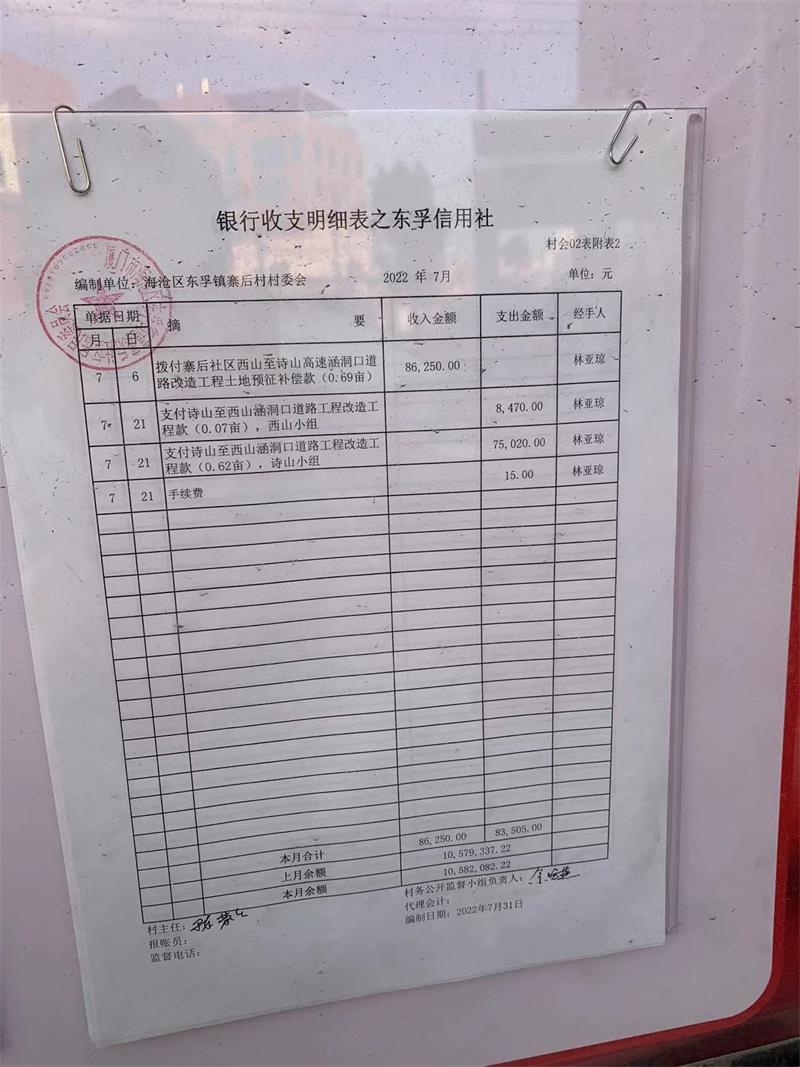 银行收支明细表之东孚信用社
村会02表附表2
编制单位：海沧区东孚镇寨后村村委会 2022 年 7月 单位：元
单据日期 摘 要 收入金额 支出金额 经手人
月 日
7 6 拨付寨后社区西山至诗山高速涵洞口道 86,250.00 林亚琼
路改造工程土地预征补偿款（0.69亩）
7 21 支付诗山至西山涵洞口道路工程改造工 8,470.00 林亚琼
程款（0.07亩），西山小组
7 21 支付诗山至西山涵洞口道路工程改造工 75,020.00 林亚琼
程款（0.62亩），诗山小组
7 21 手续费 15.00 林亚琼
本月合计 86,250.00 83,505.00
上月余额 10,579,337.22
本月余额 10,582,082.22
村主任： 村务公开监督小组负责人：
报账员： 代理会计：
监督电话： 编制日期：2022年7月31日